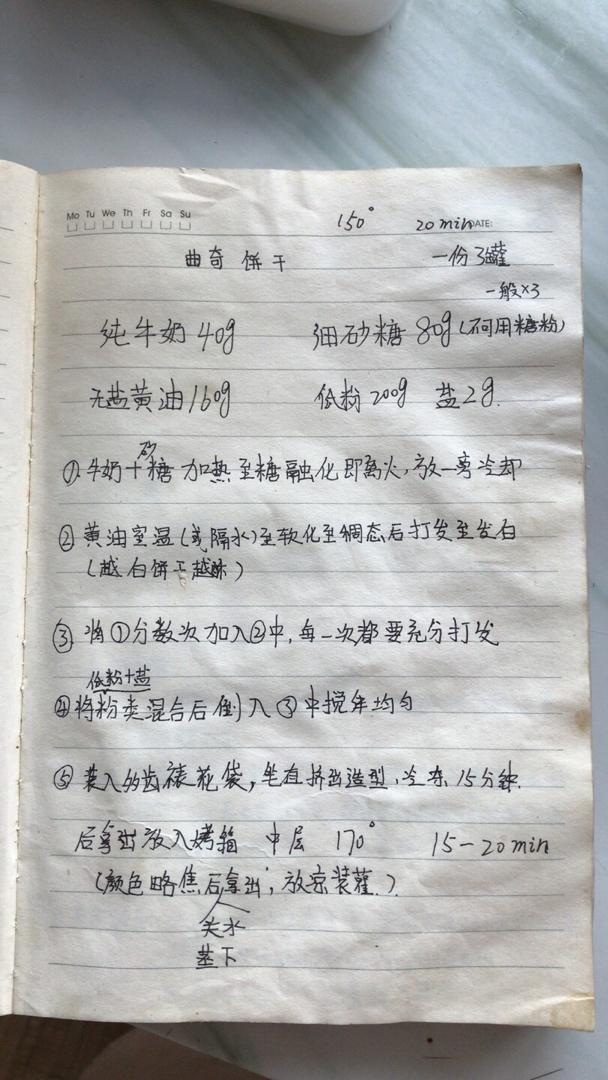 Mo Tu We Th Fr Sa Su
150° 20min DATE:
曲奇饼干 一份3罐
一般×3
纯牛奶40g 细砂糖80g(不可用糖粉)
无盐黄油160g 低粉200g 盐2g.
①牛奶+砂糖 加热至糖融化即离火,放一旁冷却
②黄油室温(或隔水)至软化至稠态后打发至发白
(越白饼干越酥)
③将①分数次加入②中,每一次都要充分打发
低粉+盐
④将粉类混合后倒入③中搅拌均匀
⑤装入8齿裱花袋,垂直挤出造型,冷冻15分钟.
后拿出放入烤箱 中层 170° 15-20min
(颜色略焦后拿出,放凉装罐.)
关火
蒸下